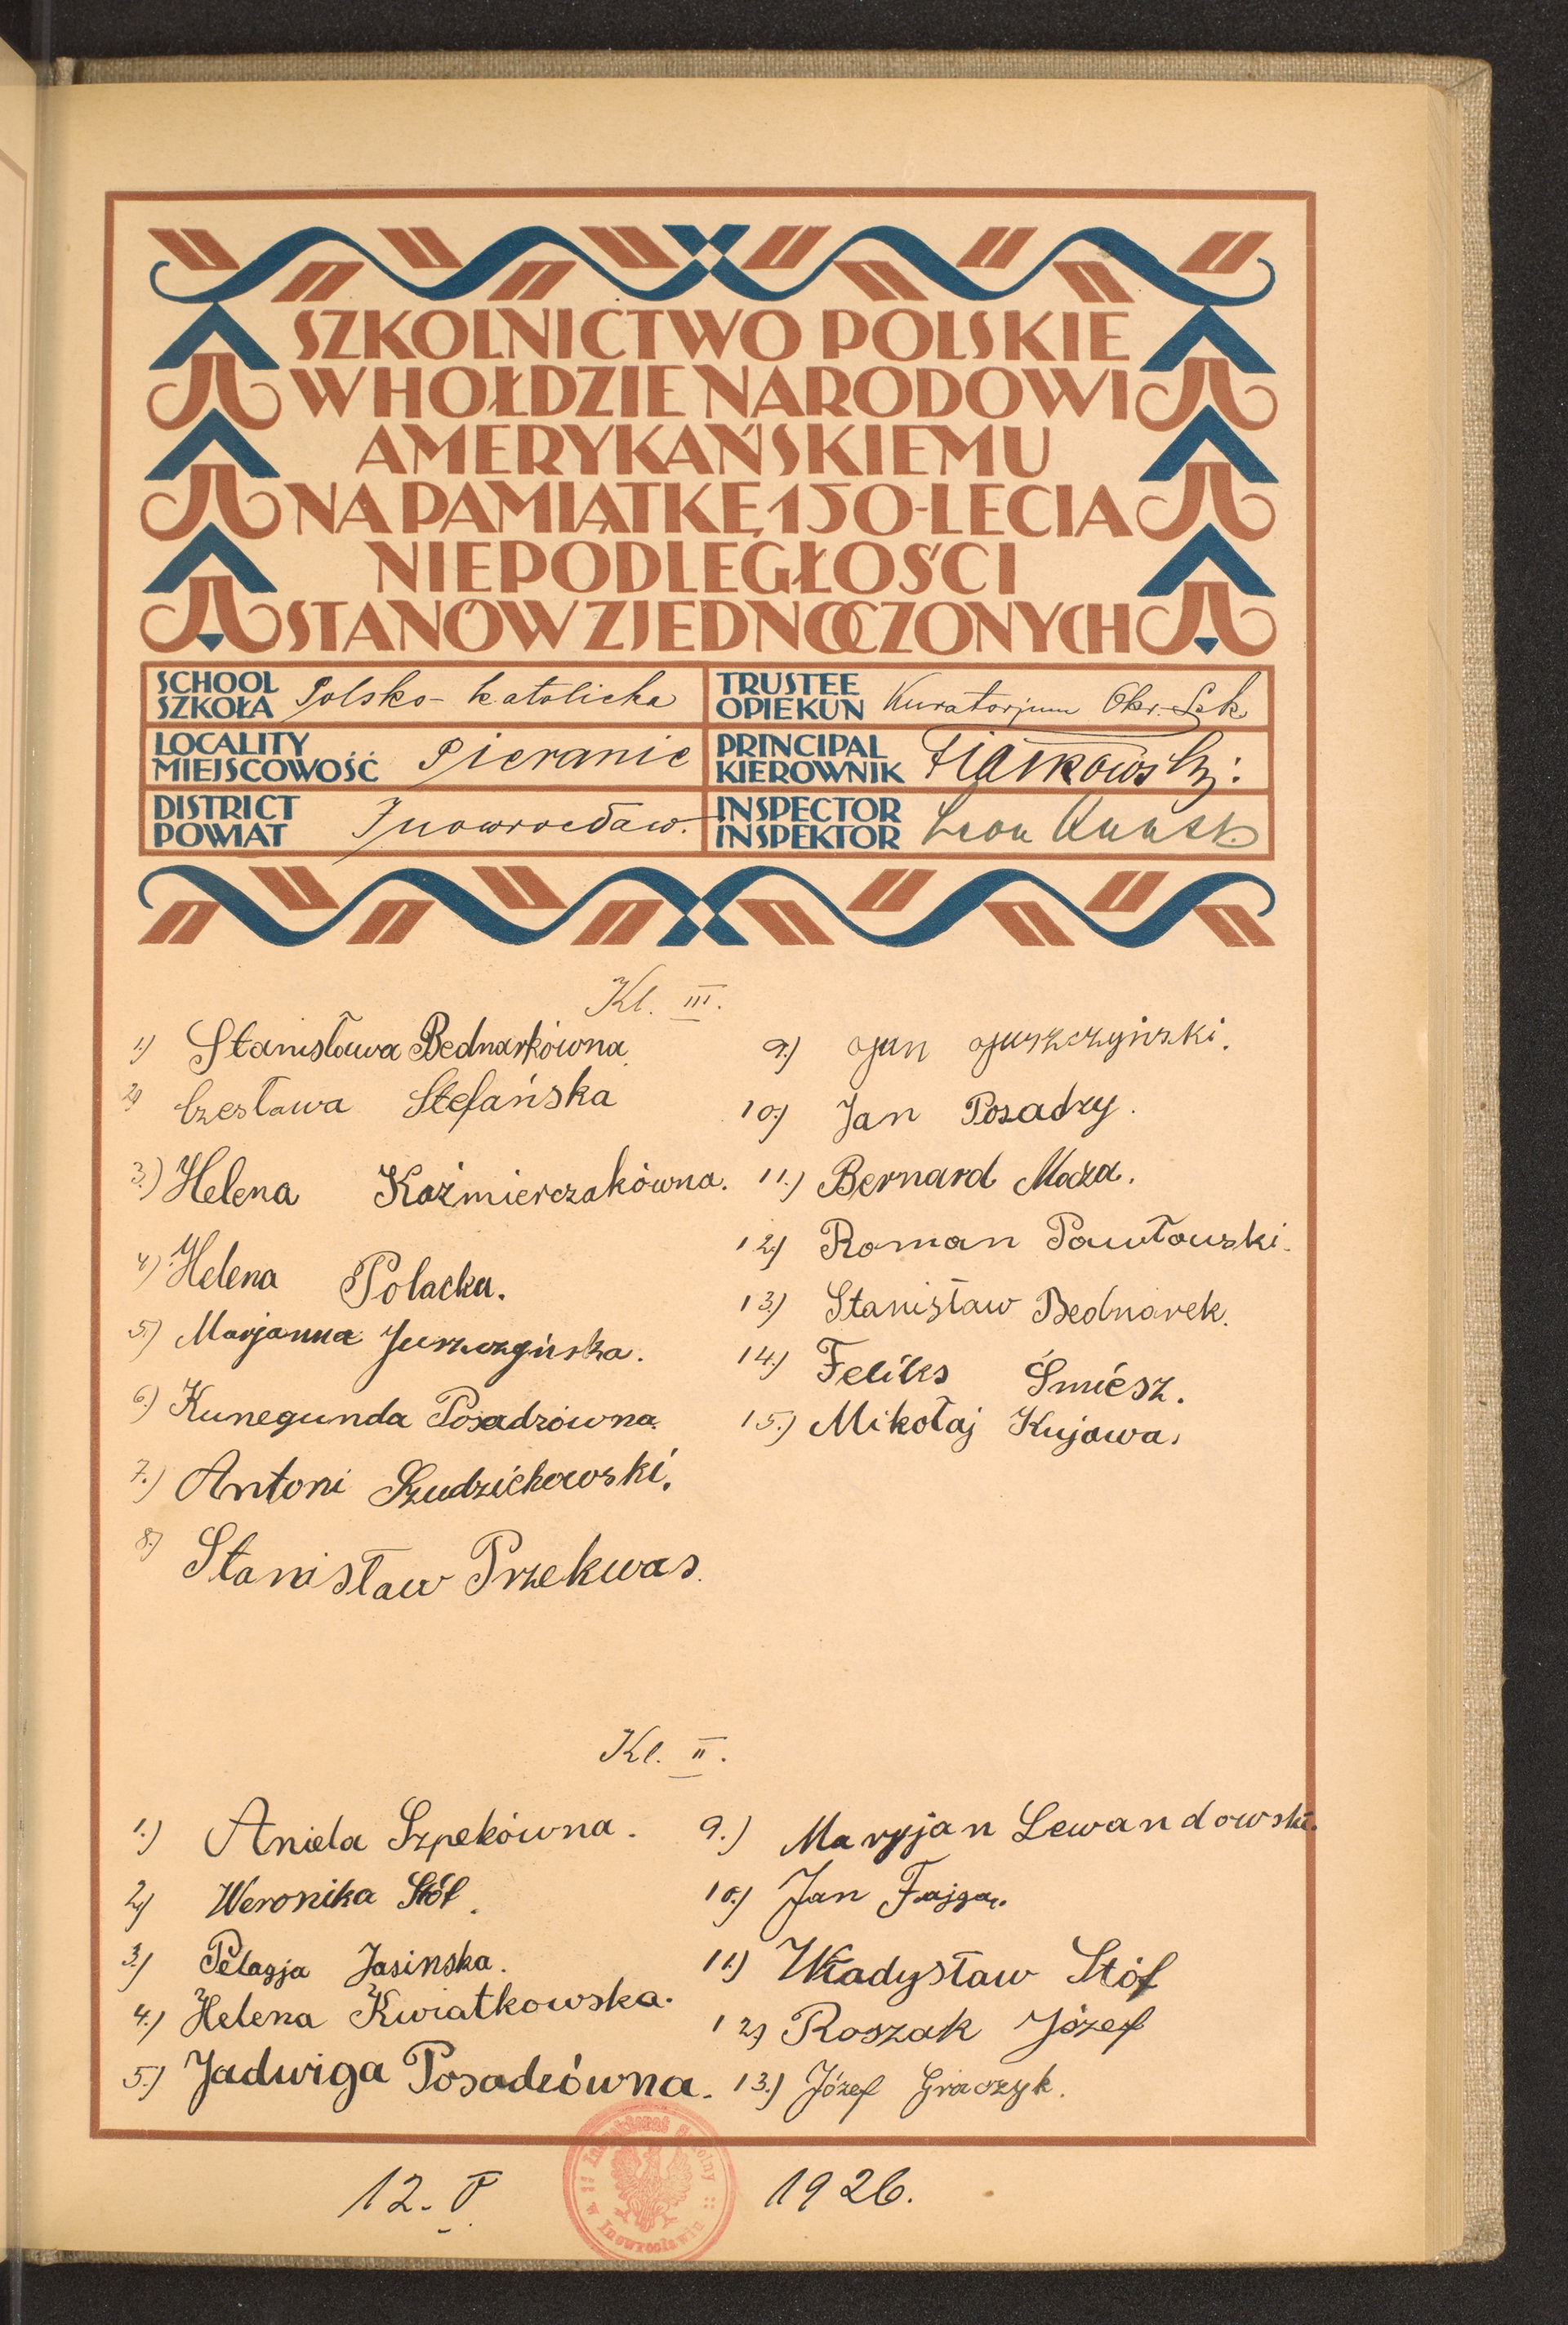 SZKOLNICTWO POLSKIE
W HOŁDZIE NARODOWI
AMERYKAŃSKIEMU
NA PAMIĄTKĘ 150-LECIA
NIEPODLEGŁOŚCI
STANÓW ZJEDNOCZONYCH
SCHOOL
SZKOŁA Polsko-katolicka
TRUSTEE
OPIEKUN Kuratorjum Okr. Szk.
LOCALITY
MIEJSCOWOŚĆ Pieranie
PRINCIPAL
KIEROWNIK
DISTRICT
POWIAT Inowrocław.
INSPECTOR
INSPEKTOR Leon
Kl. III.
1.) Stanisława Bednarkówna
2.) Czesława Stefańska
3.) Helena Kaźmierczakówna.
4.) Helena Polacka.
5.) Marjanna Juszczyńska.
6.) Kunegunda Posadzówna.
7.) Antoni Szudzichowski.
8.) Stanisław Przekwas.
9.) Jan Juszczyński.
10.) Jan Posadzy.
11.) Bernard
12.) Roman Pawłowski.
13.) Stanisław Bednarek.
14.) Feliks Śmiesz.
15.) Mikołaj Kujawa.
Kl. II.
1.) Aniela Szpekówna.
2.) Weronika Stóf.
3.) Pelagja Jasinska.
4.) Helena Kwiatkowska.
5.) Jadwiga Posadzówna.
9.) Maryjan Lewandowski.
10.) Jan Fajga.
11.) Władysław Stóf
12.) Roszak Józef
13.) Józef Graczyk.
12. V. 1926.
Inspektorat Szkolny
w Inowrocławiu